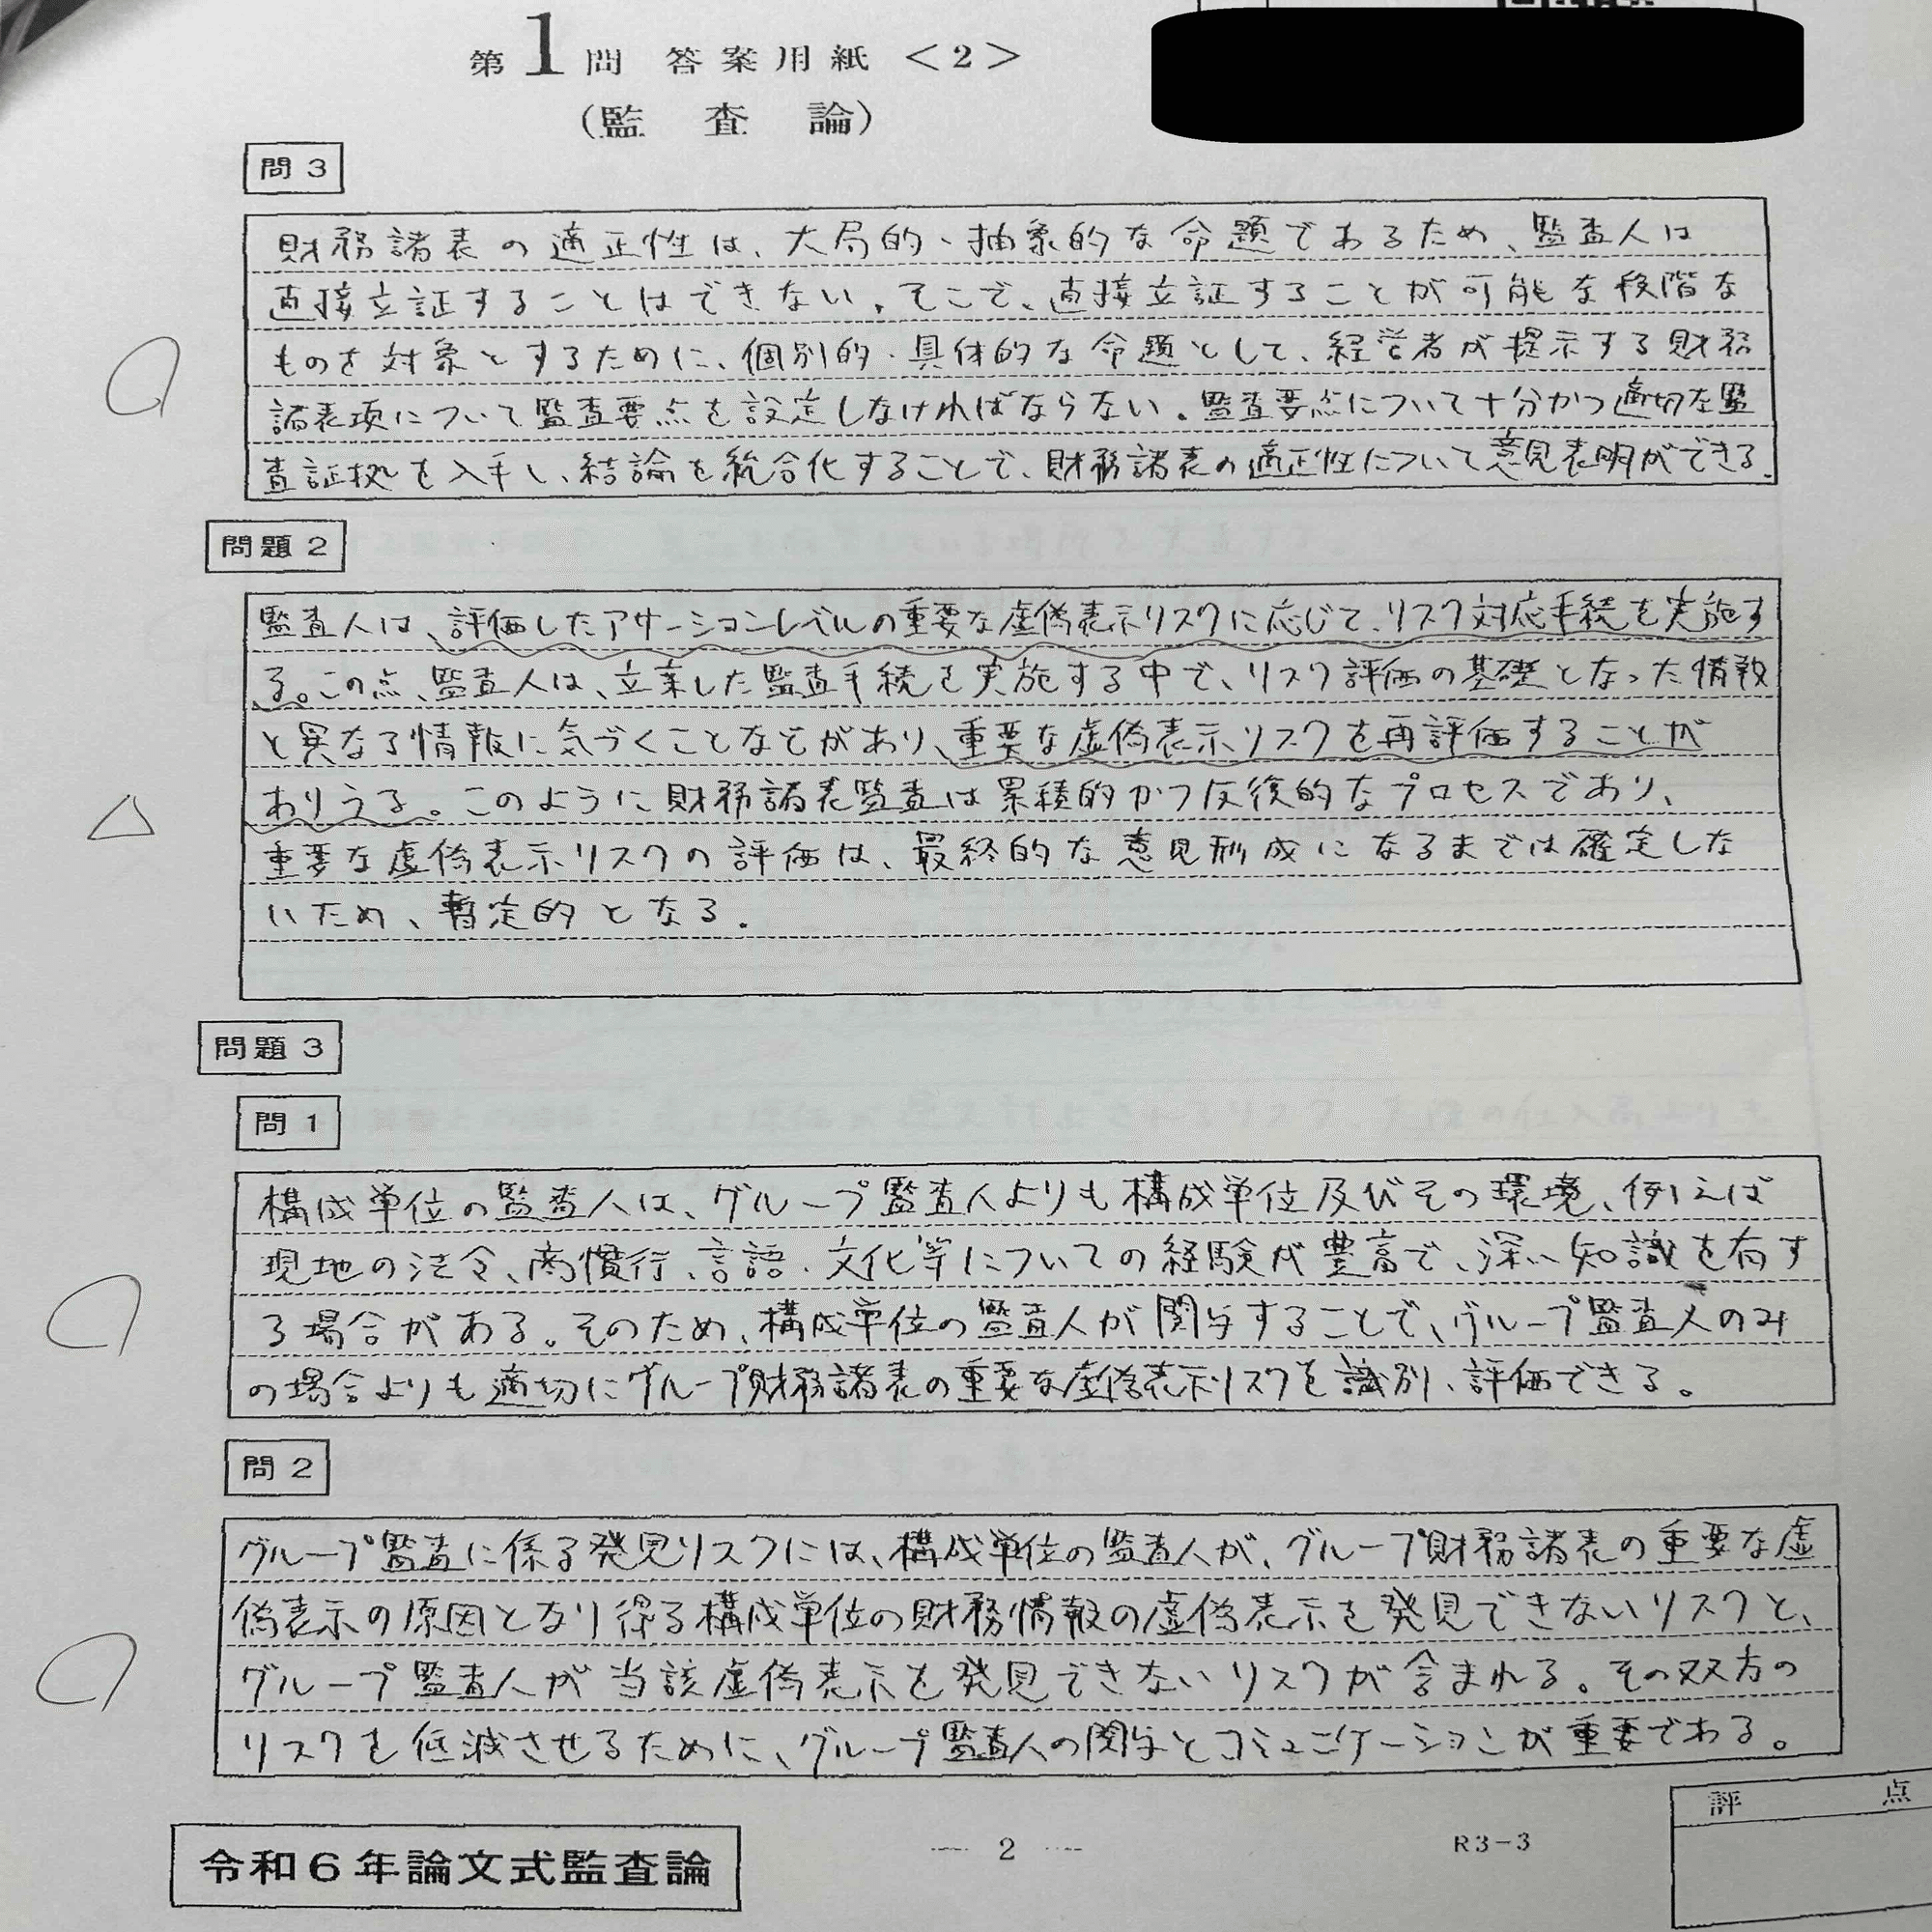 第1問 答案用紙 <2>
(監査論)
問3
財務諸表の適正性は、大局的・抽象的な命題であるため、監査人は
直接立証することはできない。そこで、直接立証することが可能な段階な
ものを対象とするために、個別的・具体的な命題として、経営者が提示する財務
諸表項について監査要点を設定しなければならない。監査要点について十分かつ適切な監
査証拠を入手し、結論を統合化することで、財務諸表の適正性について意見表明ができる。
問題2
監査人は、評価したアサーションレベルの重要な虚偽表示リスクに応じて、リスク対応手続を実施す
る。この点、監査人は、立案した監査手続を実施する中で、リスク評価の基礎となった情報
と異なる情報に気づくことなどがあり、重要な虚偽表示リスクを再評価することが
ありうる。このように財務諸表監査は累積的かつ反復的なプロセスであり、
重要な虚偽表示リスクの評価は、最終的な意見形成になるまでは確定しな
いため、暫定的となる。
問題3
問1
構成単位の監査人は、グループ監査人よりも構成単位及びその環境、例えば
現地の法令、商慣行、言語、文化等についての経験が豊富で、深い知識を有す
る場合がある。そのため、構成単位の監査人が関与することで、グループ監査人のみ
の場合よりも適切にグループ財務諸表の重要な虚偽表示リスクを識別、評価できる。
問2
グループ監査に係る発見リスクには、構成単位の監査人が、グループ財務諸表の重要な虚
偽表示の原因となり得る構成単位の財務情報の虚偽表示を発見できないリスクと、
グループ監査人が当該虚偽表示を発見できないリスクが含まれる。その双方の
リスクを低減させるために、グループ監査人の関与とコミュニケーションが重要である。
評点
令和6年論文式監査論
— 2 —
R3-3